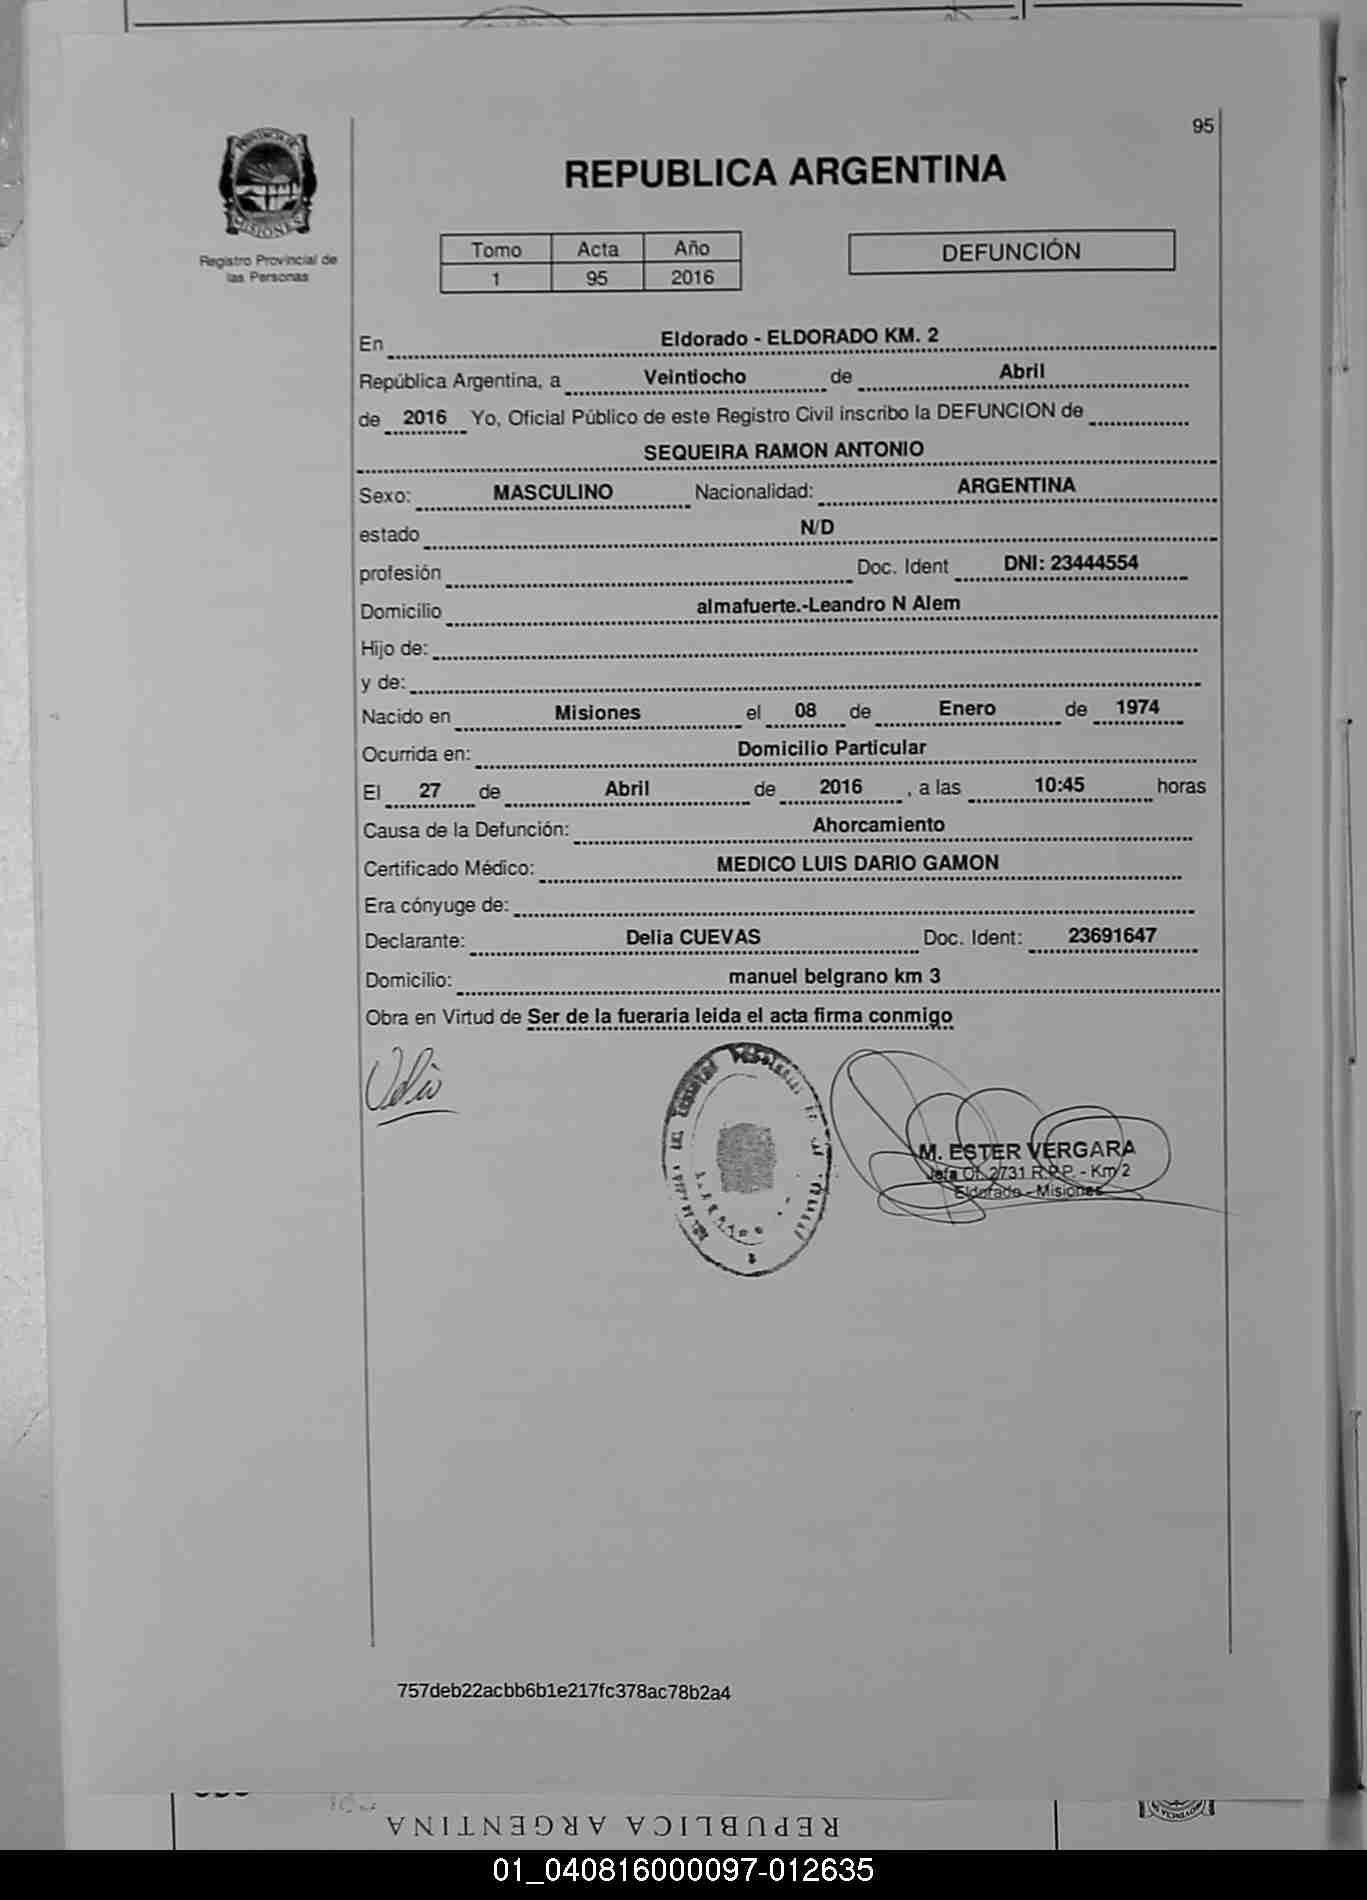 95
PROVINCIA DE
MISIONES
REPUBLICA ARGENTINA
Registro Provincial de
las Personas
Tomo Acta Año
1 95 2016
DEFUNCIÓN
En Eldorado - ELDORADO KM. 2
República Argentina, a Veintiocho de Abril
de 2016 Yo, Oficial Público de este Registro Civil inscribo la DEFUNCION de
SEQUEIRA RAMON ANTONIO
Sexo: MASCULINO Nacionalidad: ARGENTINA
estado N/D
profesión Doc. Ident DNI: 23444554
Domicilio almafuerte.-Leandro N Alem
Hijo de:
y de:
Nacido en Misiones el 08 de Enero de 1974
Ocurrida en: Domicilio Particular
El 27 de Abril de 2016 , a las 10:45 horas
Causa de la Defunción: Ahorcamiento
Certificado Médico: MEDICO LUIS DARIO GAMON
Era cónyuge de:
Declarante: Delia CUEVAS Doc. Ident: 23691647
Domicilio: manuel belgrano km 3
Obra en Virtud de Ser de la fueraria leida el acta firma conmigo
M. ESTER VERGARA
Jefa Of. 2731 R.P.P. - Km 2
Eldorado - Misiones
757deb22acbb6b1e217fc378ac78b2a4
REPUBLICA ARGENTINA
01_040816000097-012635